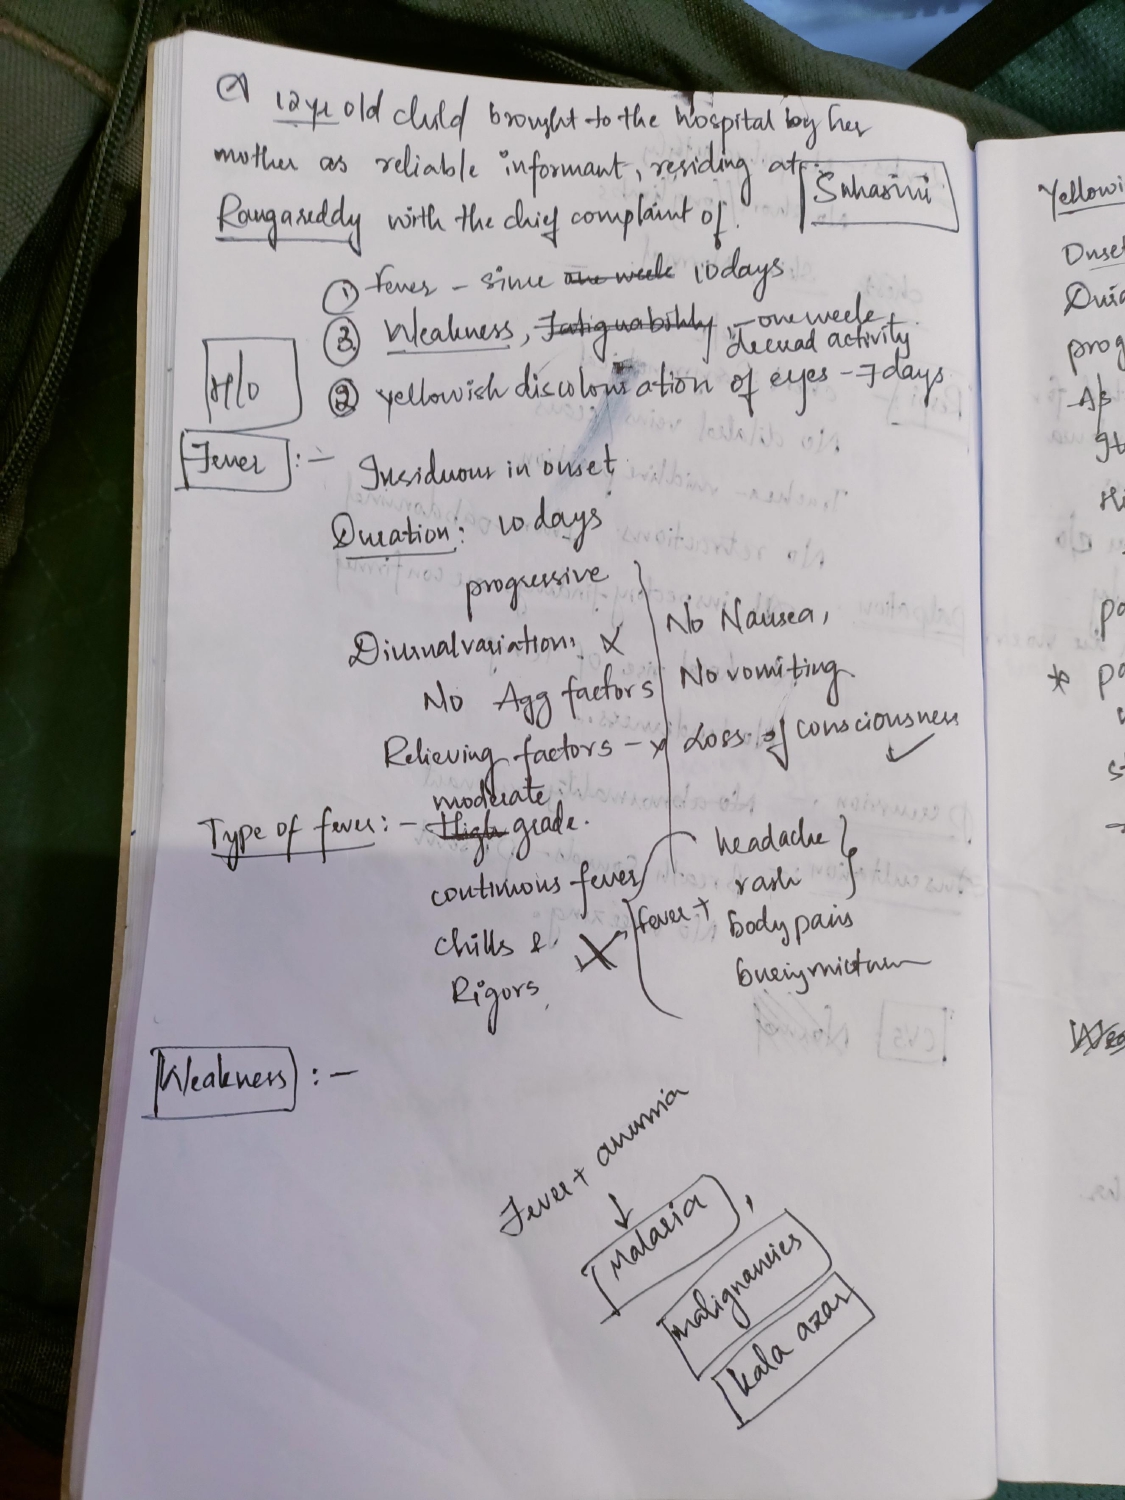 A 12 yr old child brought to the hospital by her
mother as reliable informant, residing at
Suhasini
Rangareddy with the chief complaint of
① Fever - since one week 10 days
③ Weakness, Fatiguability, - one week
decread activity
H/o
② yellowish discolouration of eyes - 7 days
Fever :- Insiduous in onset
Duration: 10 days
progressive
Diurnal variation: x
No Agg factors
Relieving factors - x
No Nausea,
No vomiting
Loss of consciousness ✓
moderate
Type of fever: - High grade.
continuous fever
chills &
Rigors
x
fever +
headache
rash
body pains
Weakness :-
Fever + anemia
↓
Malaria,
malignancies
kala azar
Yellowi
Onset
prog